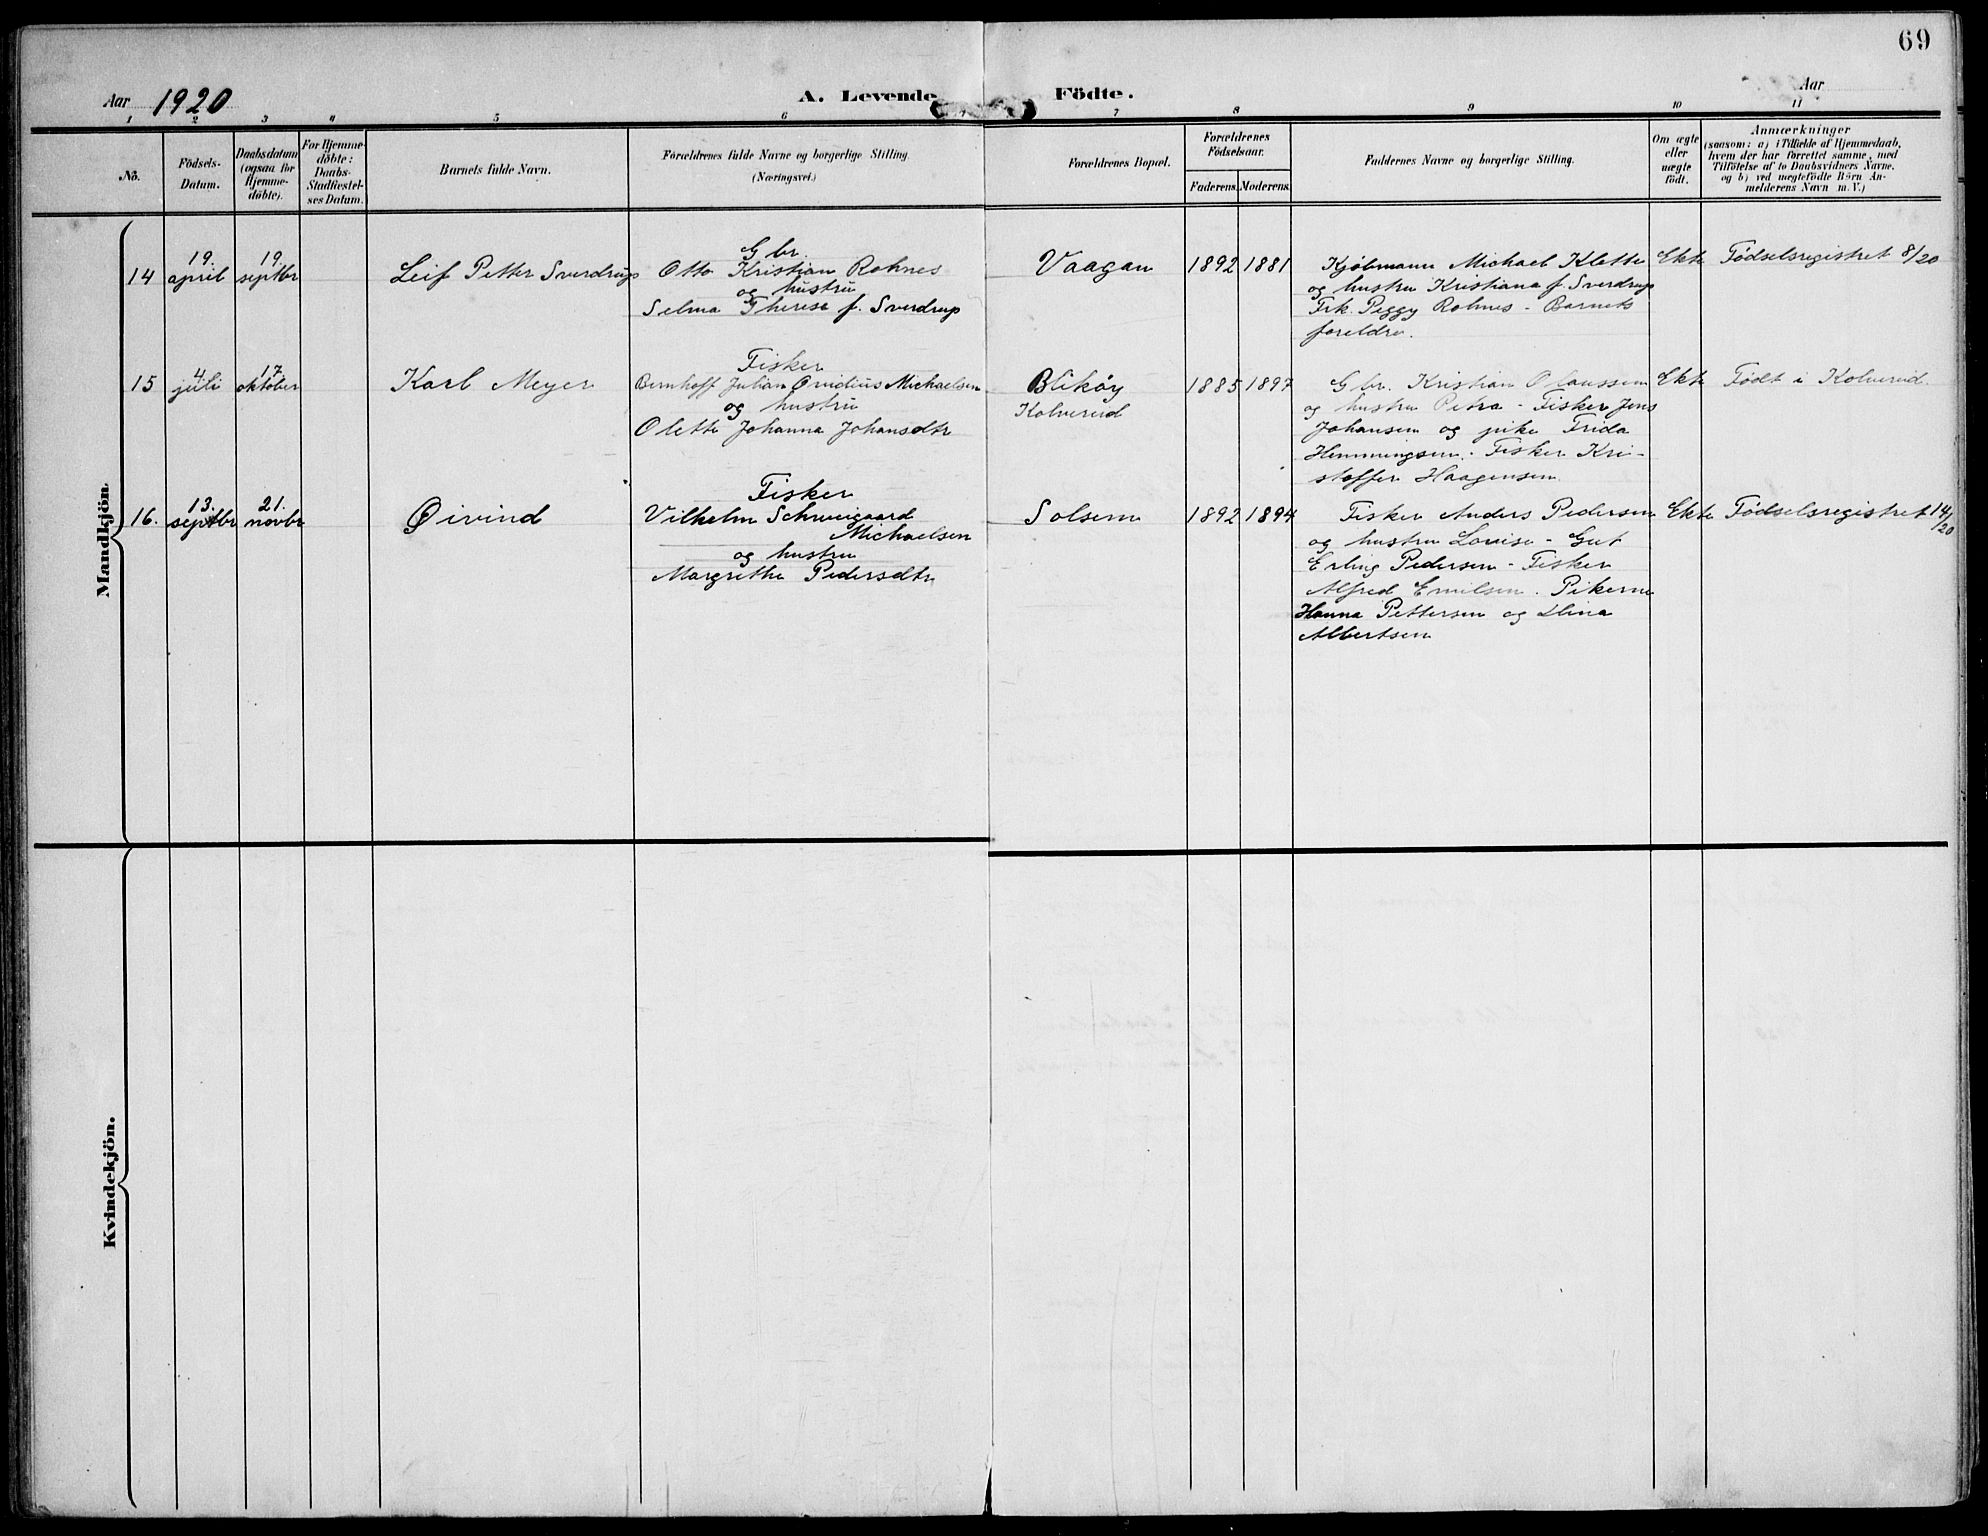 69
Aar 1920
A. Levende Födte.
Aar
1 2 3 4 5 6 7 8 9 10 11
No.
Födsels-Datum.
Daabsdatum (ogsaa for Hjemme-døbte).
For Hjemme-døbte: Daabs-Stadfæstel-ses Datum.
Barnets fulde Navn.
Forældrenes fulde Navne og borgerlige Stilling.
(Næringsvei.)
Forældrenes Bopæl.
Forældrenes Födselsaar.
Faderens. Moderens.
Faddernes Navne og borgerlige Stilling.
Om ægte eller uægte født.
Anmærkninger
(saasom: a) i Tilfælde af Hjemmedaab,
hvem der har forrettet samme, med
Tilföielse af to Daabsvidners Navne,
og b) ved uægtefödte Börn An-
melderens Navn m. V.)
Mandkjön.
14
19. april
19. septbr
Leif Petter Sverdrup
Gbr.
Otto Kristian Rohnes
og hustru
Selma Therese f. Sverdrup
Vaagan
1892 1881
Kjøbmann Michael Klette
og hustru Kristiana f. Sverdrup
Frk. Peggy Rohnes - Barnets
foreldre.
Ekte
Fødselsregistret 8/20
15
4. juli
17. oktober
Karl Meyer
Fisker
Bernhoff Julian Michaelsen
og hustru
Olette Johanna Johansdtr
Blikøy
Kolvereid
1885 1897
Gbr. Kristian Olaussen
og hustru Petra - Fisker Jens
Johansen og pike Frida
Hemmingsen. Fisker Kri-
stoffer Haagensen
Ekte
Født i Kolvereid.
16.
13. septbr
21. novbr
Øivind
Fisker
Vilhelm Schweigaard
Michaelsen
og hustru
Margrethe Pedersdtr
Solsem
1892 1894
Fisker Anders Pedersen
og hustru Lovise - Gut
Erling Pedersen - Fisker
Alfred Emilsen. Pikerne
Hanna Pettersen og
Albertsen
Ekte
Fødselsregistret 14/20
Kvindekjön.